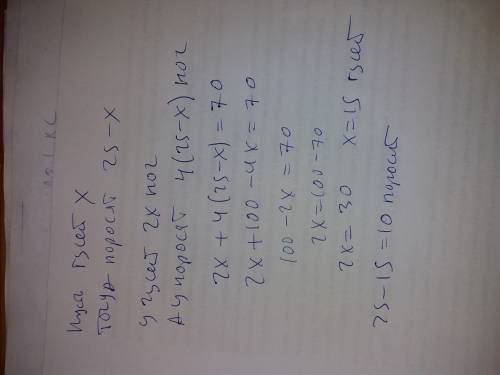 гусей х
Тогда поросят 25-х
У гусей 2х ног
А у поросят 4(25-х) ног
2х+4(25-х)=70
2х+100-4х=70
100-2х=70
2х=100-70
2х=30 х=15 гусей
25-15=10 поросят